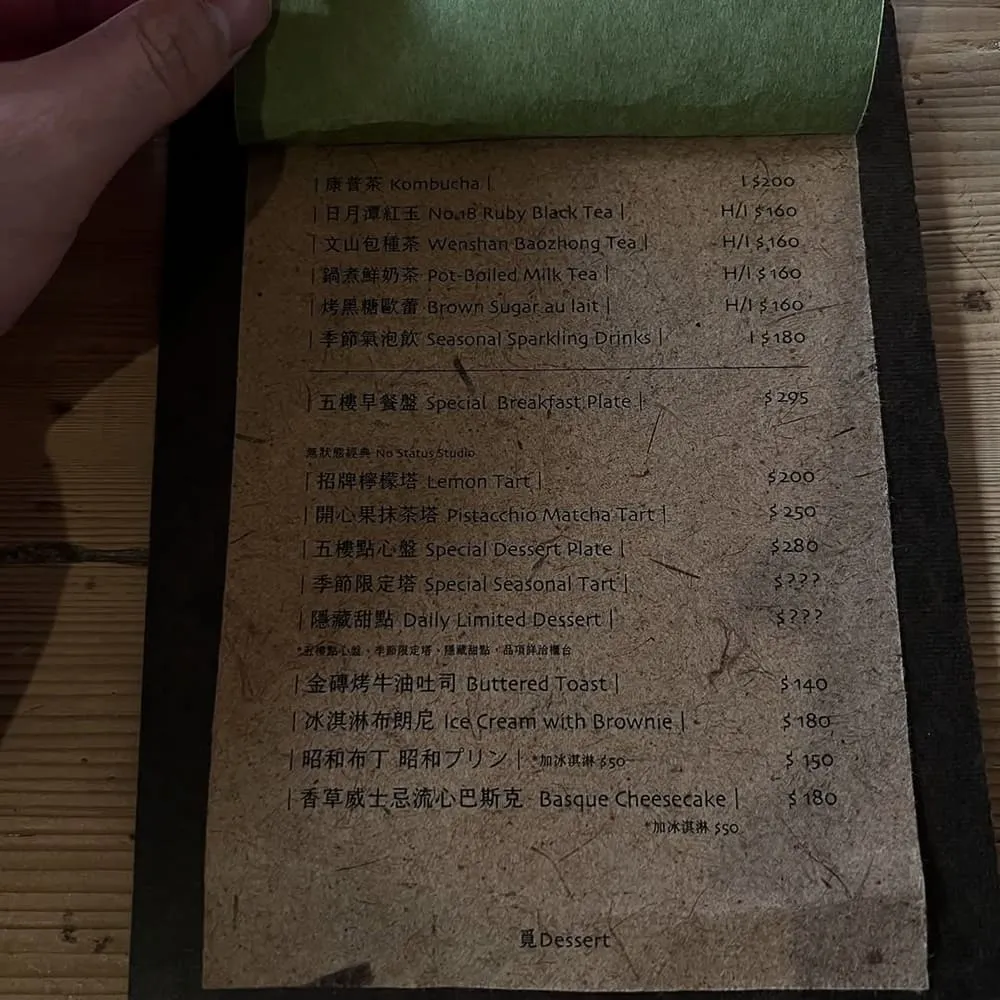 |康普茶 Kombucha| I $200
|日月潭紅玉 No.18 Ruby Black Tea| H/I $160
|文山包種茶 Wenshan Baozhong Tea| H/I $160
|鍋煮鮮奶茶 Pot-Boiled Milk Tea| H/I $160
|烤黑糖歐蕾 Brown Sugar au lait| H/I $160
|季節氣泡飲 Seasonal Sparkling Drinks| I $180
|五樓早餐盤 Special Breakfast Plate| $295
無狀態經典 No Status Studio
|招牌檸檬塔 Lemon Tart| $200
|開心果抹茶塔 Pistacchio Matcha Tart| $250
|五樓點心盤 Special Dessert Plate| $280
|季節限定塔 Special Seasonal Tart| $???
|隱藏甜點 Daily Limited Dessert| $???
*五樓點心盤、季節限定塔、隱藏甜點，品項詳洽櫃台
|金磚烤牛油吐司 Buttered Toast| $140
|冰淇淋布朗尼 Ice Cream with Brownie| $180
|昭和布丁 昭和プリン| *加冰淇淋 $50 $150
|香草威士忌流心巴斯克 Basque Cheesecake| $180
*加冰淇淋 $50
覓Dessert